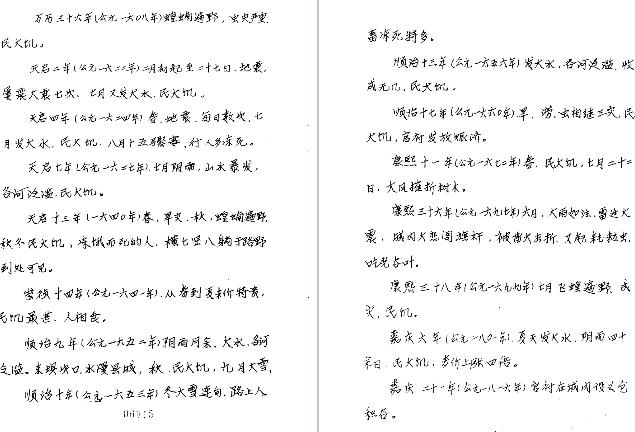 万历三十六年(公元一六〇八年)蝗蝻遍野，虫灾严重，
民大饥。
天启二年(公元一六二二年)二月初起至二十七日，地震，
屡震大震七次，七月又发大水，民大饥。
天启四年(公元一六二四年)春，地震，每日数次，七
月发大水，民大饥，八月十五日，行人多冻死。
天启七年(公元一六二七年)七月阴雨，山水暴发，
各河泛滥，民大饥。
天启十三年(一六四〇年)春，旱灾，秋，蝗蝻遍野，
秋冬民大饥，冻饿而死的人，横七竖八躺于路野
到处可见。
崇祯十四年(公元一六四一年)，从春到夏米价特贵，
民饥最甚，人相食。
顺治九年(公元一六五二年)阴雨月余，大水，各河
泛滥。口，水漫县城，秋，民大饥，九月大雪，
顺治十年(公元一六五三年)冬大雪连旬，路上人
畜冻死特多。
顺治十三年(公元一六五六年)发大水，各河泛滥，收
成无几，民大饥。
顺治十七年(公元一六六〇年)旱、涝、虫相继三灾，民
大饥，官府发放赈济。
康熙十一年(公元一六七二年)春，民大饥，七月二十二
日，大风摧折树木。
康熙三十六年(公元一六九七年)六月，大雨如注，雷迅大
震，城内大悲阁旗杆，被雷火击折，又虸蚄虫，
吃光谷叶。
康熙三十八年(公元一六九九年)七月飞蝗遍野，成
灾，民饥。
嘉庆六年(公元一八〇一年)夏天发大水，阴雨四十
余日，民大饥，米价上涨四倍。
嘉庆二十一年(公元一八一六年)官府在城内设义仓
积谷。